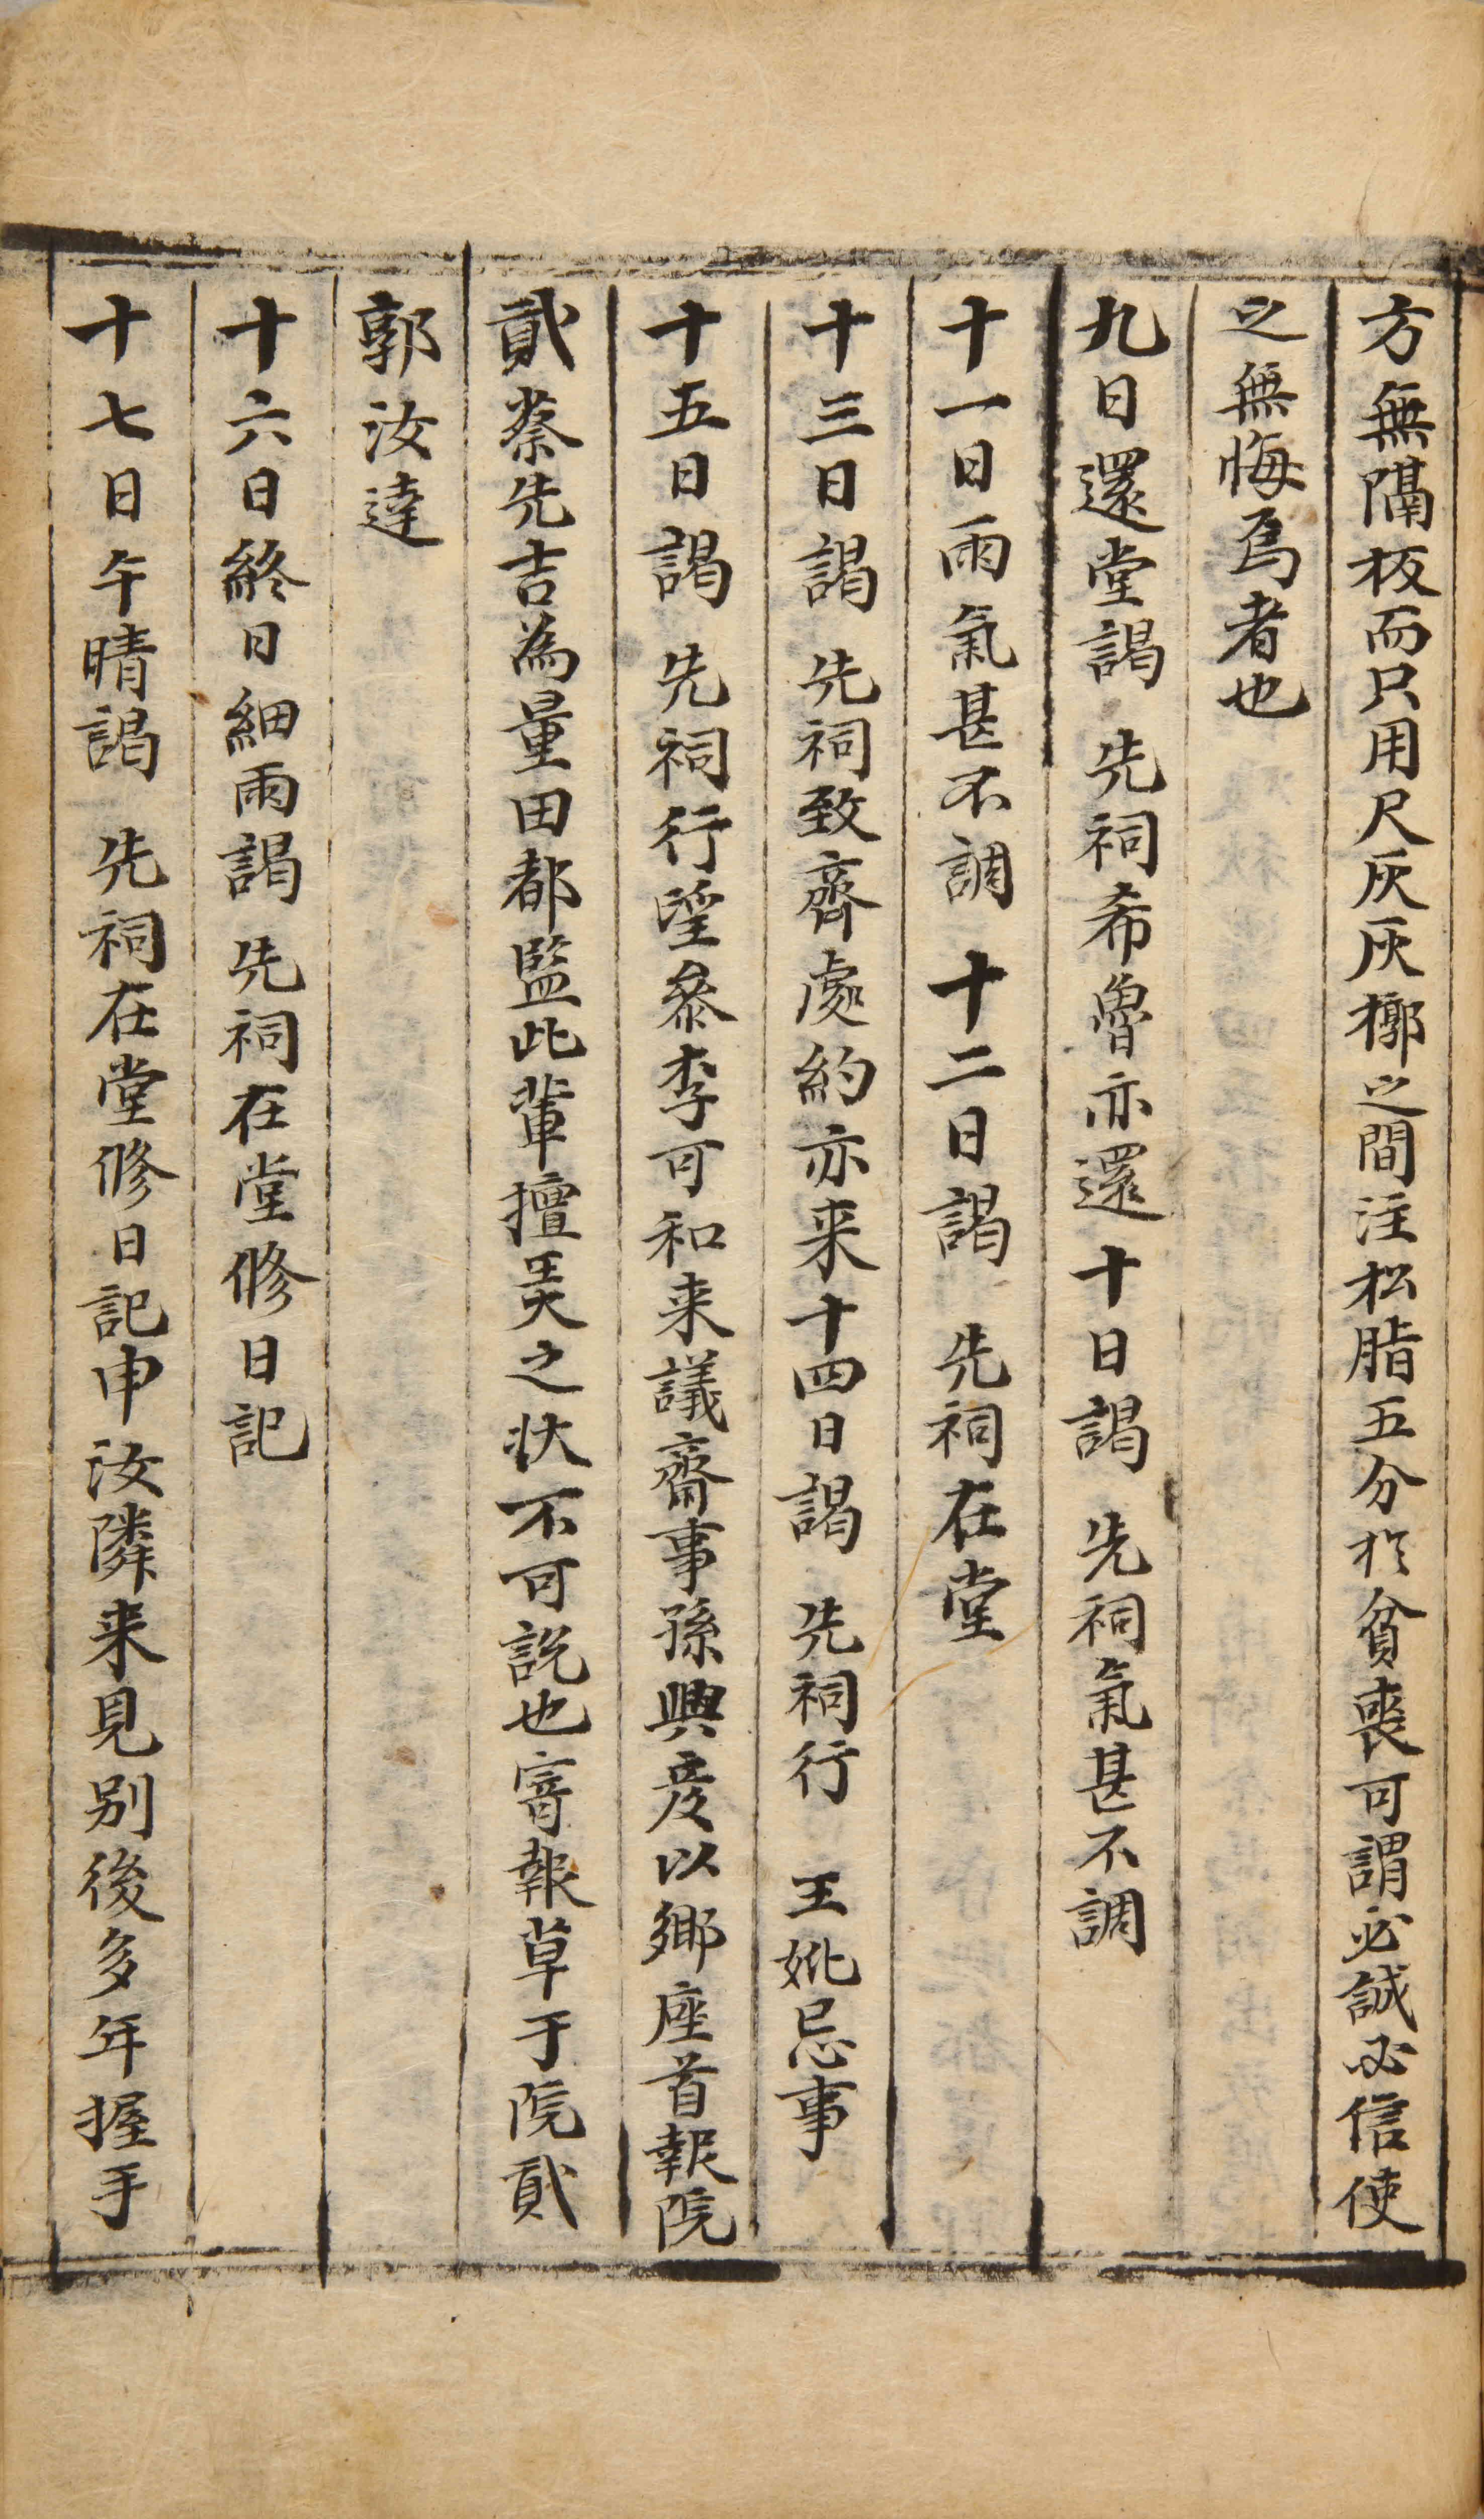 方無隔板而只用尺灰灰槨之間注松脂五分於貧喪可謂必誠必信使
之無悔焉者也
九日還堂謁 先祠希魯亦還十日謁 先祠氣甚不調
十一日雨氣甚不調 十二日謁 先祠在堂
十三日謁 先祠致齊處約亦来十四日謁 先祠行 王妣忌事
十五日謁 先祠行望參李可和来議齋事孫興度以鄉座首報院
貳蔡先吉為量田都監此輩擅美之状不可說也寄報草于院貳
郭汝達
十六日終日細雨謁 先祠在堂修日記
十七日午晴謁 先祠在堂修日記申汝隣来見别後多年握手